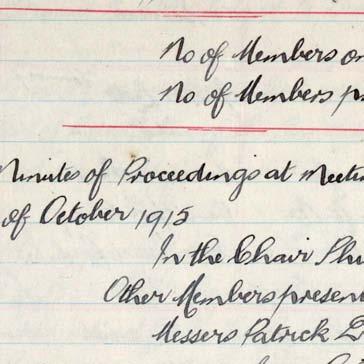 No of Members on
No of Members p
Minutes of Proceedings at Meetin
of October 1915
In the Chair Phi
Other Members present
Messers Patrick